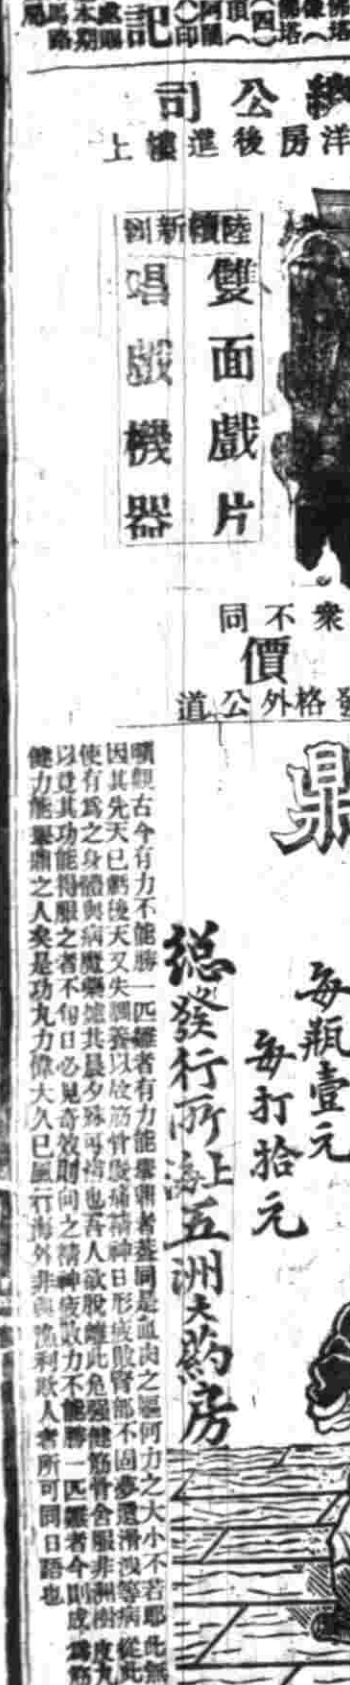 記
司公
上樓進後房洋
雙面戲片
唱戲機器
同不衆
價
道公外格發
鼎
每瓶壹元
每打拾元
總發行所上海五洲大藥房
曠觀古今有力不能勝一匹雛者有力能舉鼎者蓋同是血肉之軀何力之大小不若耶此無
因其先天已虧後天又失調養以致筋骨痠痛精神日形疲敗腎部不固夢遺滑洩等病從此
使有爲之身體與病魔藥爐共晨夕殊可惜也吾人欲脫離此危強健筋骨舍服非洲樹皮丸
以竟其功能得服之者不旬日必見奇效則向之精神疲敗力不能勝一匹雛者今則成爲筋
健力能舉鼎之人矣是功丸力偉大久已風行海外非與漁利欺人者所可同日語也